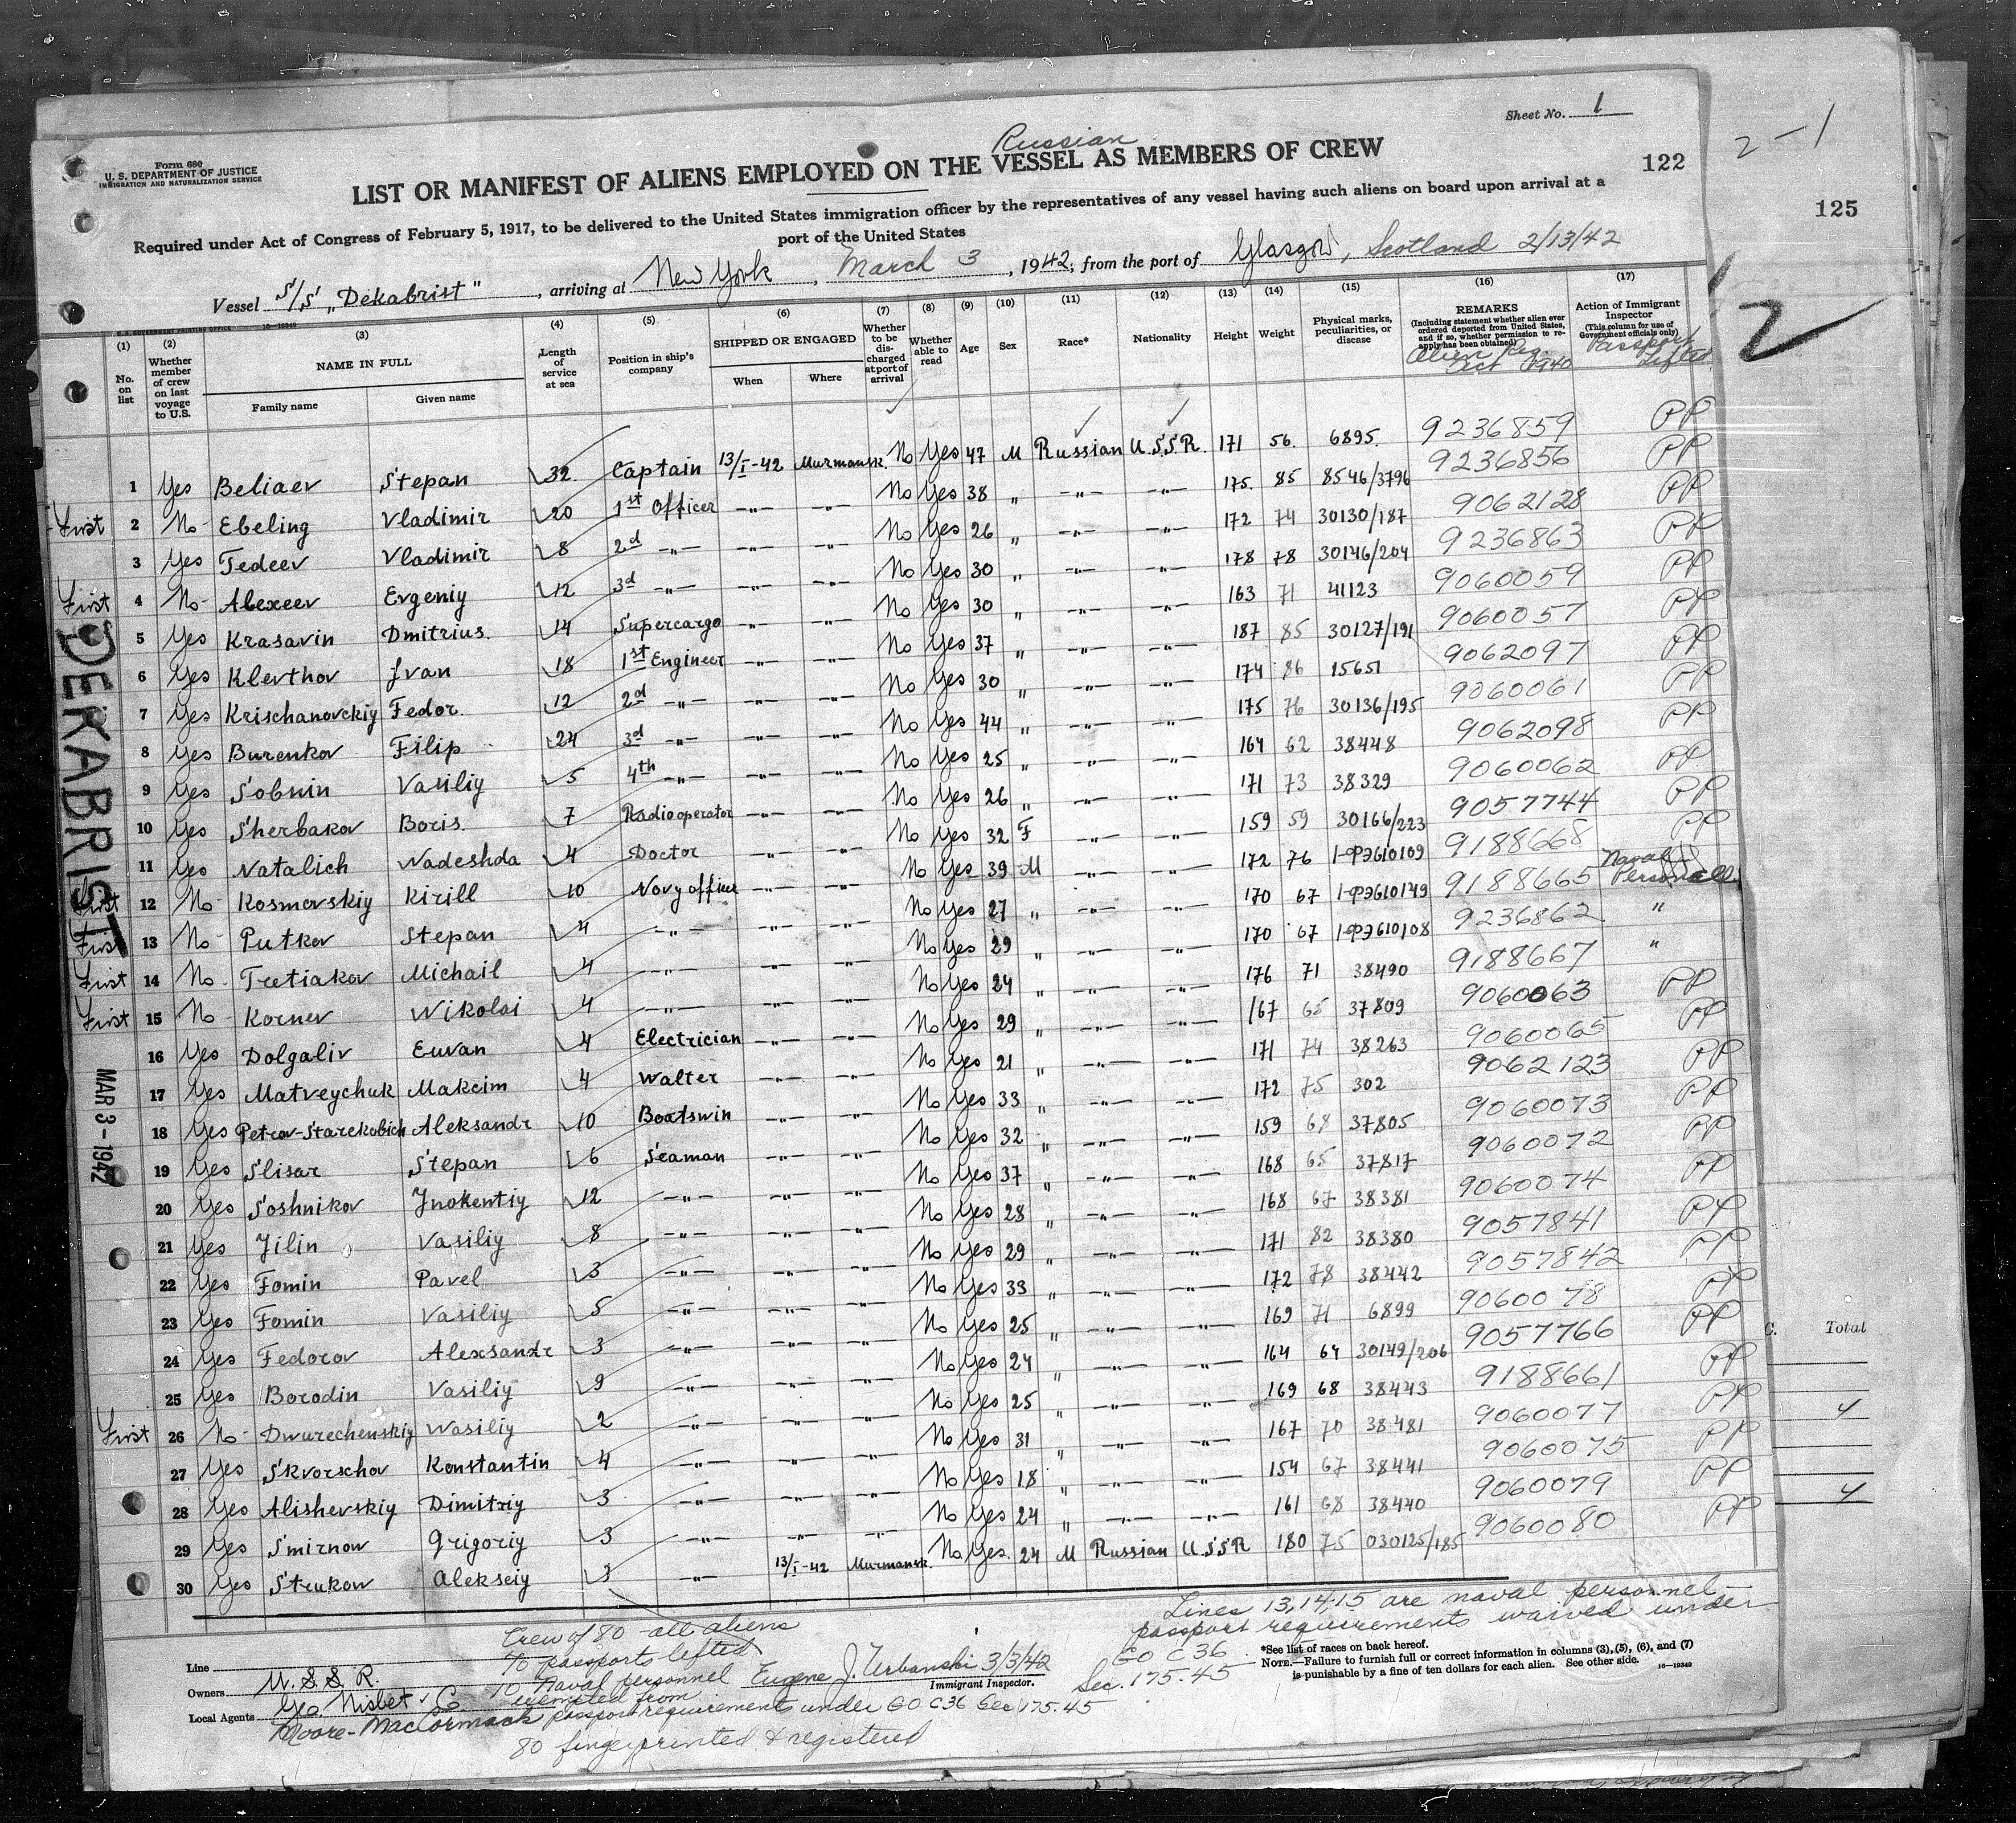 Sheet No. 1
Russian
2-1
Form 680
U. S. DEPARTMENT OF JUSTICE
IMMIGRATION AND NATURALIZATION SERVICE
LIST OR MANIFEST OF ALIENS EMPLOYED ON THE VESSEL AS MEMBERS OF CREW
122
125
Required under Act of Congress of February 5, 1917, to be delivered to the United States immigration officer by the representatives of any vessel having such aliens on board upon arrival at a
port of the United States
Vessel S/S „Dekabrist", arriving at New York, March 3, 1942, from the port of Glasgow, Scotland 2/13/42
2
(1) No. on list
(2) Whether member of crew on last voyage to U.S.
(3) NAME IN FULL Family name Given name
(4) Length of service at sea
(5) Position in ship's company
(6) SHIPPED OR ENGAGED When Where
(7) Whether to be discharged at port of arrival
(8) Whether able to read
(9) Age
(10) Sex
(11) Race*
(12) Nationality
(13) Height
(14) Weight
(15) Physical marks, peculiarities, or disease
(16) REMARKS (Including statement whether alien ever ordered deported from United States, and if so, whether permission to reapply has been obtained) Alien Reg. Act 1940
(17) Action of Immigrant Inspector (This column for use of Government officials only) Passport Lifted
1 Yes Beliaev Stepan 32 Captain 13/I-42 Murmansk. No Yes 47 M Russian U.S.S.R. 171 56 6895 9236859 PP
First 2 No Ebeling Vladimir 20 1st Officer -"- -"- No Yes 38 „ -"- -"- 175 85 8546/3796 9236856 PP
3 Yes Tedeev Vladimir 8 2d -"- -"- -"- No Yes 26 „ -"- -"- 172 74 30130/187 9062128 PP
First 4 No Alexeev Evgeniy 12 3d -"- -"- -"- No Yes 30 „ -"- -"- 178 78 30146/204 9236863 PP
5 Yes Krasavin Dmitrius. 14 Supercargo -"- -"- No Yes 30 „ -"- -"- 163 71 41123 9060059 PP
6 Yes Klevthov Jvan 18 1st Engineer -"- -"- No Yes 37 „ -"- -"- 187 85 30127/191 9060057 PP
7 Yes Krischanovckiy Fedor. 12 2d -"- -"- -"- No Yes 30 „ -"- -"- 174 86 15651 9062097 PP
8 Yes Burenkov Filip 24 3d -"- -"- -"- No Yes 44 „ -"- -"- 175 76 30136/195 9060061 PP
9 Yes Sobnin Vasiliy 5 4th -"- -"- -"- No Yes 25 „ -"- -"- 164 62 38448 9062098 PP
10 Yes Sherbakov Boris. 7 Radiooperator -"- -"- No Yes 26 „ -"- -"- 171 73 38329 9060062 PP
11 Yes Natalich Nadeshda 4 Doctor -"- -"- No Yes 32 F -"- -"- 159 59 30166/223 9057744 PP
First 12 No Kosmovskiy Kirill 10 Navy officer -"- -"- No Yes 39 M -"- -"- 172 76 1-ФЭ610109 9188668 PP
First 13 No Putkov Stepan 4 -"- -"- -"- No Yes 27 „ -"- -"- 170 67 1-ФЭ610149 9188665 Naval Personell
First 14 No Tretiakov Michail 4 -"- -"- -"- No Yes 29 „ -"- -"- 170 67 1-ФЭ610108 9236862 "
First 15 No Kornev Nikolai 4 -"- -"- -"- No Yes 24 „ -"- -"- 176 71 38490 9188667 "
16 Yes Dolgaliv Euvan 4 Electrician -"- -"- No Yes 29 „ -"- -"- 167 65 37809 9060063 PP
17 Yes Matveychuk Makcim 4 Walter -"- -"- No Yes 21 „ -"- -"- 171 74 38263 9060065 PP
18 Yes Petrov-Starekobich Aleksandr 10 Boatswin -"- -"- No Yes 33 „ -"- -"- 172 75 302 9062123 PP
19 Yes Slisar Stepan 6 Seaman -"- -"- No Yes 32 „ -"- -"- 159 68 37805 9060073 PP
20 Yes Soshnikov Jnokentiy 12 -"- -"- -"- No Yes 37 „ -"- -"- 168 65 37817 9060072 PP
21 Yes Jilin Vasiliy 8 -"- -"- -"- No Yes 28 „ -"- -"- 168 67 38381 9060074 PP
22 Yes Fomin Pavel 3 -"- -"- -"- No Yes 29 „ -"- -"- 171 82 38380 9057841 PP
23 Yes Fomin Vasiliy 5 -"- -"- -"- No Yes 33 „ -"- -"- 172 78 38442 9057842 PP
24 Yes Fedorov Alexsandr 3 -"- -"- -"- No Yes 25 „ -"- -"- 169 71 6899 9060078 PP
25 Yes Borodin Vasiliy 9 -"- -"- -"- No Yes 24 „ -"- -"- 164 64 30149/206 9057766 PP
First 26 No Dwurechenskiy Wasiliy 2 -"- -"- -"- No Yes 25 „ -"- -"- 169 68 38443 9188661 PP
27 Yes Skvorschov Konstantin 4 -"- -"- -"- No Yes 31 „ -"- -"- 167 70 38481 9060077 PP
28 Yes Alishevskiy Dimitriy 3 -"- -"- -"- No Yes 18 „ -"- -"- 154 67 38441 9060075 PP
29 Yes Smirnow Grigoriy 3 -"- -"- -"- No Yes 24 „ -"- -"- 161 68 38440 9060079 PP
30 Yes Strukow Alekseiy 3 -"- 13/I-42 Murmansk. No Yes. 24 M Russian U.S.S.R 180 75 030125/185 9060080 PP
DEKABRIST
MAR 3-1942
Total
4
4
Crew of 80 - all aliens
70 passports lifted
10 Naval personnel
exempted from
passport requirements under GO C36 Sec 175.45
80 fingerprinted & registered
Lines 13,14,15 are naval personnel -
passport requirements waived under
GO C 36
Sec. 175.45
Line
Owners U.S.S.R.
Local Agents Geo. Nisbet & Co.
Moore-MacCormack
Eugene J. Urbanski 3/3/42
Immigrant Inspector.
*See list of races on back hereof.
NOTE.—Failure to furnish full or correct information in columns (3), (5), (6), and (7)
is punishable by a fine of ten dollars for each alien. See other side. 16-19349